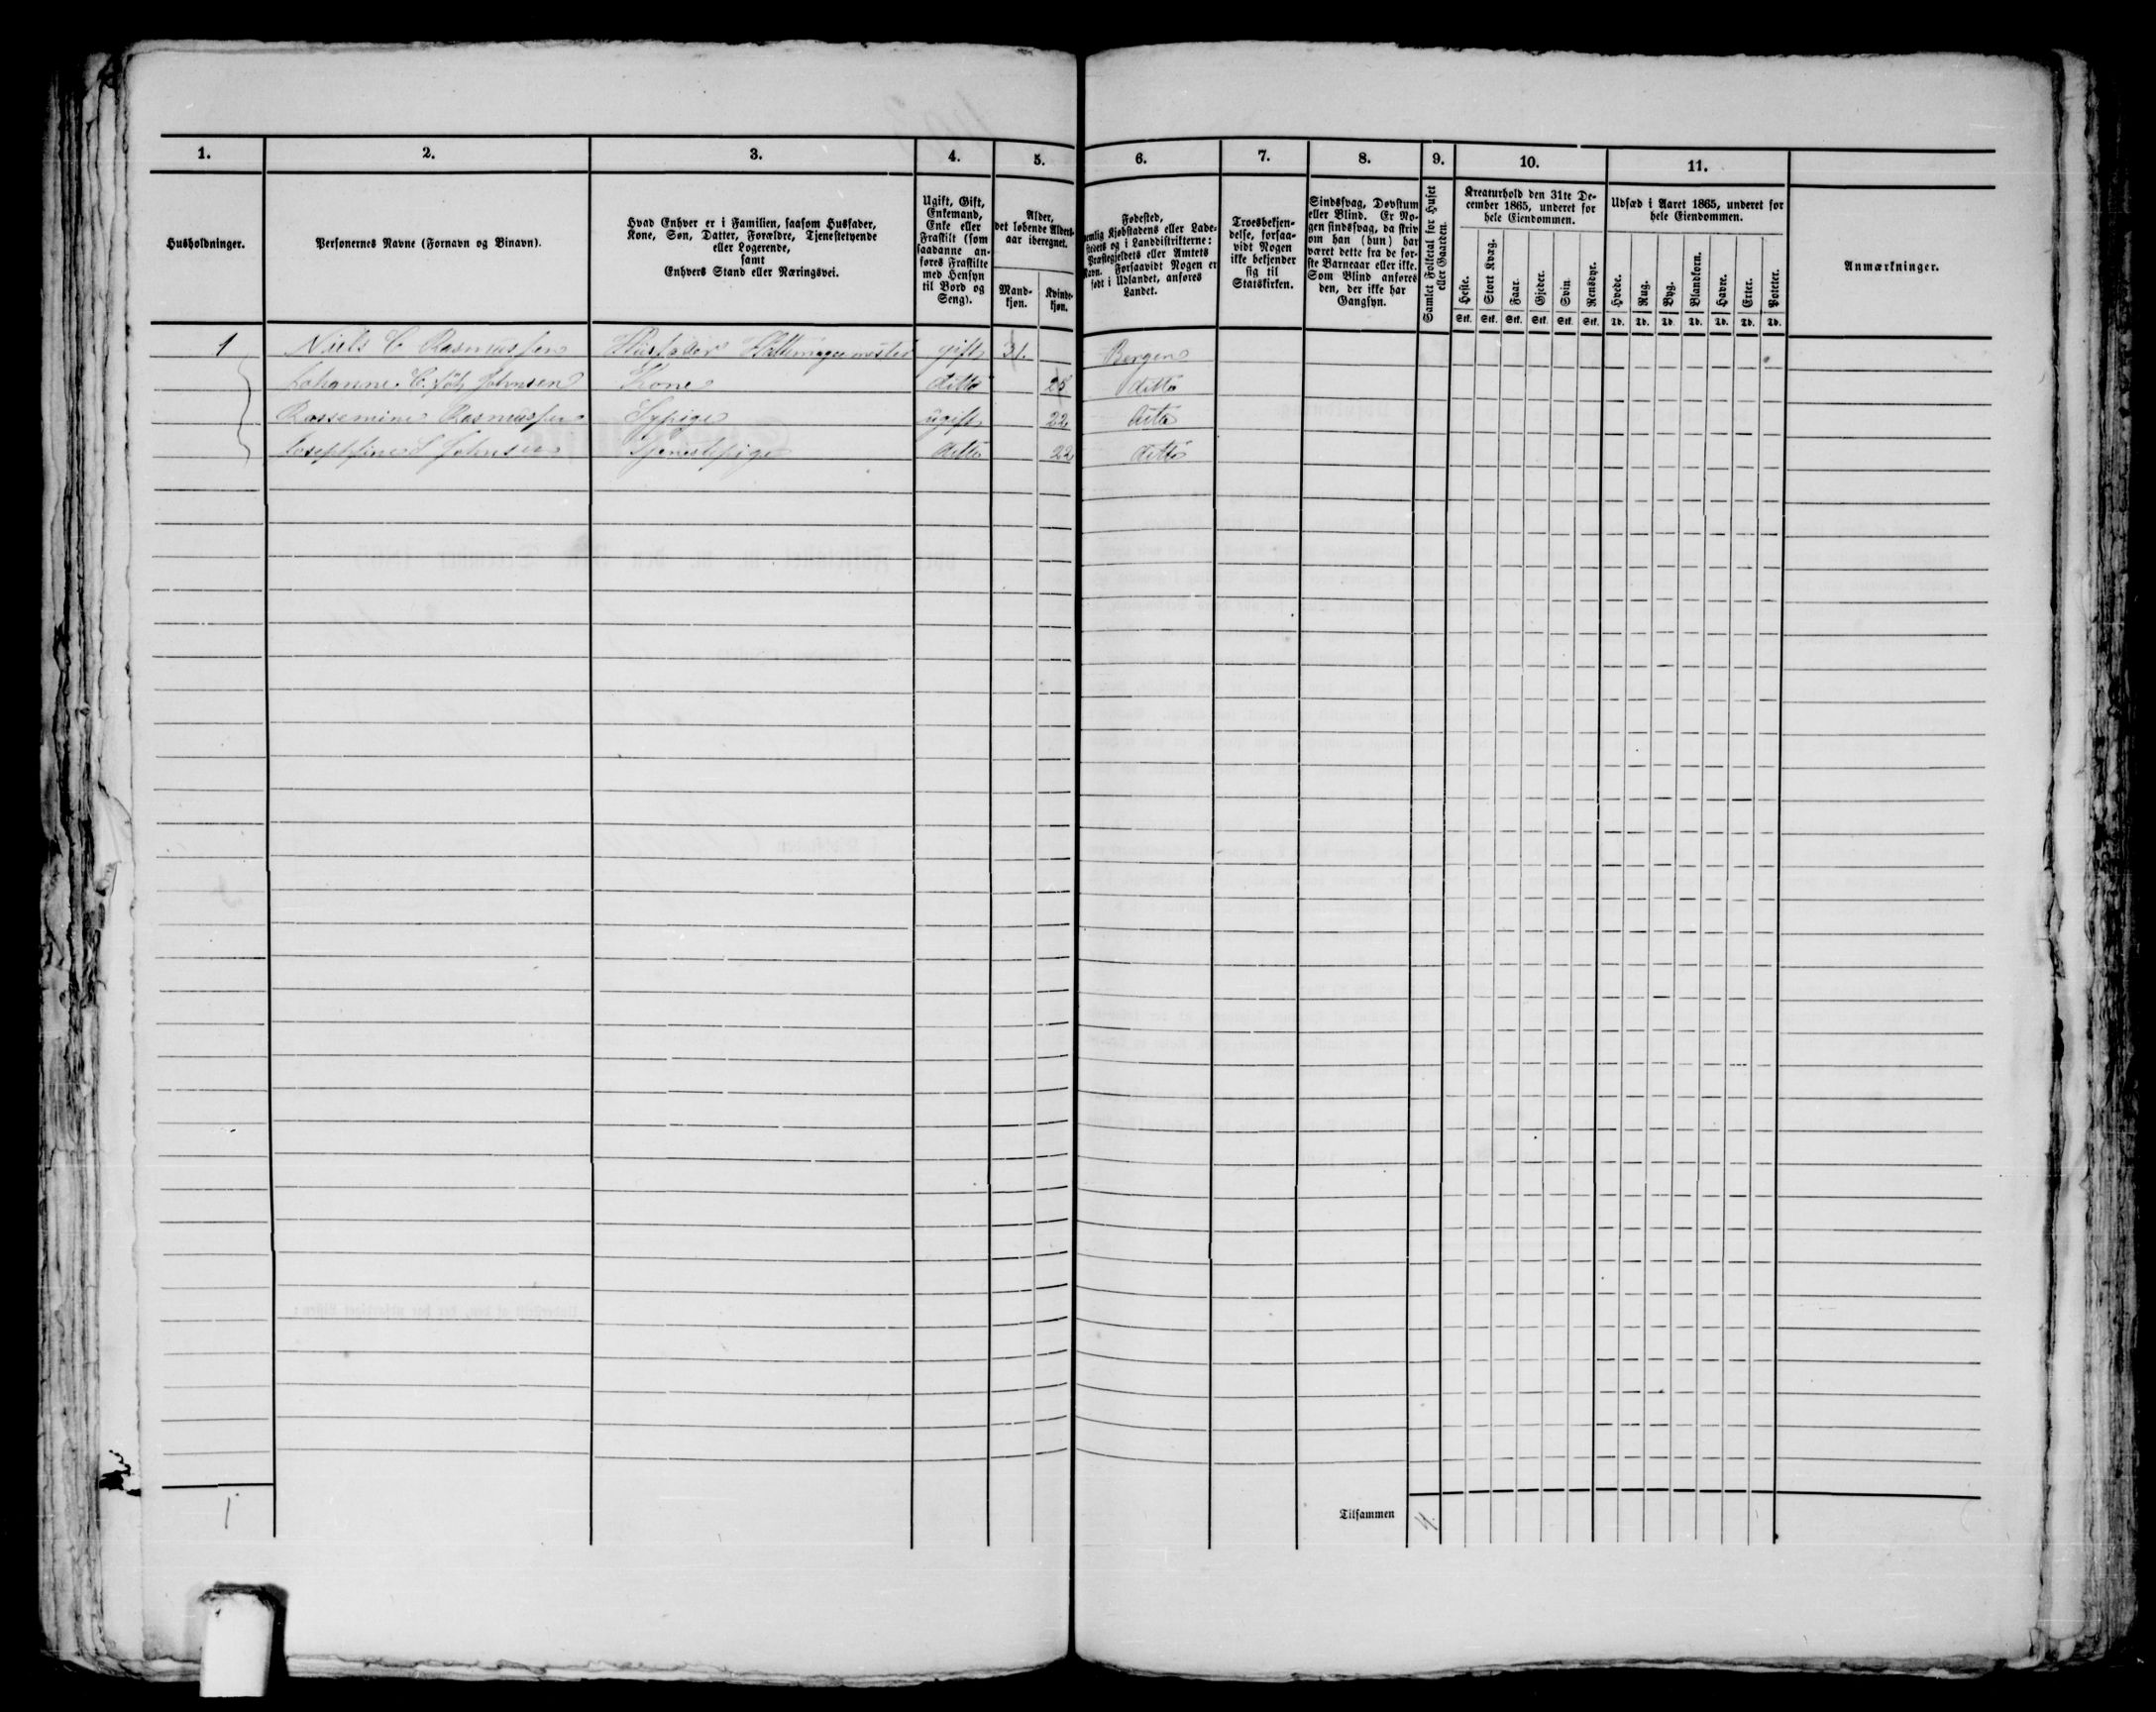 1. 2. 3. 4. 5. 6. 7. 8. 9. 10. 11.
Husholdninger.
Personernes Navne (Fornavn og Binavn).
Hvad Enhver er i Familien, saasom Husfader,
Kone, Søn, Datter, Forældre, Tjenestetyende
eller Logerende,
samt
Enhvers Stand eller Næringsvei.
Ugift, Gift,
Enkemand,
Enke eller
Fraskilt (som
saadanne an-
føres Fraskilte
med Hensyn
til Bord og
Seng).
Alder,
det løbende Alders-
aar iberegnet.
Mand-
kjøn.
Kvinde-
kjøn.
Fødested,
nemlig Kjøbstadens eller Lade-
stedets og i Landdistrikterne:
Præstegjeldets eller Amtets
Navn. Forsaavidt Nogen er
født i Udlandet, anføres
Landet.
Troesbekjen-
delse, forsaa-
vidt Nogen
ikke bekjender
sig til
Statskirken.
Sindssvag, Døvstum
eller Blind. Er No-
gen sindssvag, da skriv
om han (hun) har
været dette fra de før-
ste Barneaar eller ikke.
Som Blind anføres
den, der ikke har
Gangsyn.
Samlet Folketal for Huset
eller Gaarden.
Kreaturhold den 31te De-
cember 1865, underet for
hele Eiendommen.
Heste. Stort Kvæg. Faar. Gjeder. Svin. Rensdyr.
Stk. Stk. Stk. Stk. Stk. Stk.
Udsæd i Aaret 1865, underet for
hele Eiendommen.
Hvede. Rug. Byg. Blandkorn. Havre. Erter. Poteter.
Td. Td. Td. Td. Td. Td. Td.
Anmærkninger.
1 Niels C Rasmussen Husfader gift 31. Bergen
Johanne C. Johnsen Kone ditto 25 ditto
Rassemine Rasmussen Sypige ugift 22 ditto
Josephine S Johnsen Tjenestepige ditto 22 ditto
1 Tilsammen 4.